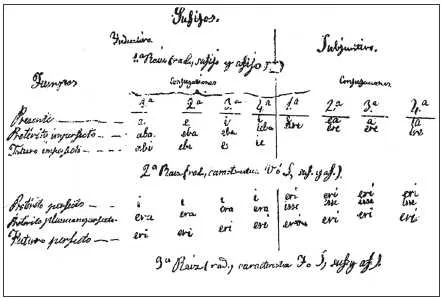 Sufijos.
Indicativo Subjuntivo.
1.ª Raiz (rad., sufijo y afijo).
Tiempos Conjugaciones Conjugaciones
1.ª 2.ª 3.ª 4.ª 1.ª 2.ª 3.ª 4.ª
Presente a. e i i ea a ia
Preterito imperfecto aba. eba eba ieba ere ere ere
Futuro imperfecto abi ebe es ie
2.ª Raiz (rad., característica V ó S, suf. y af.).
Pretérito perfecto i i i i eri eri eri eri
Pretérito pluscuamperfecto era era era era isse isse isse isse
Futuro perfecto eri eri eri eri eri eri eri
3.ª Raiz (rad., característica T ó S, suf. y af.).